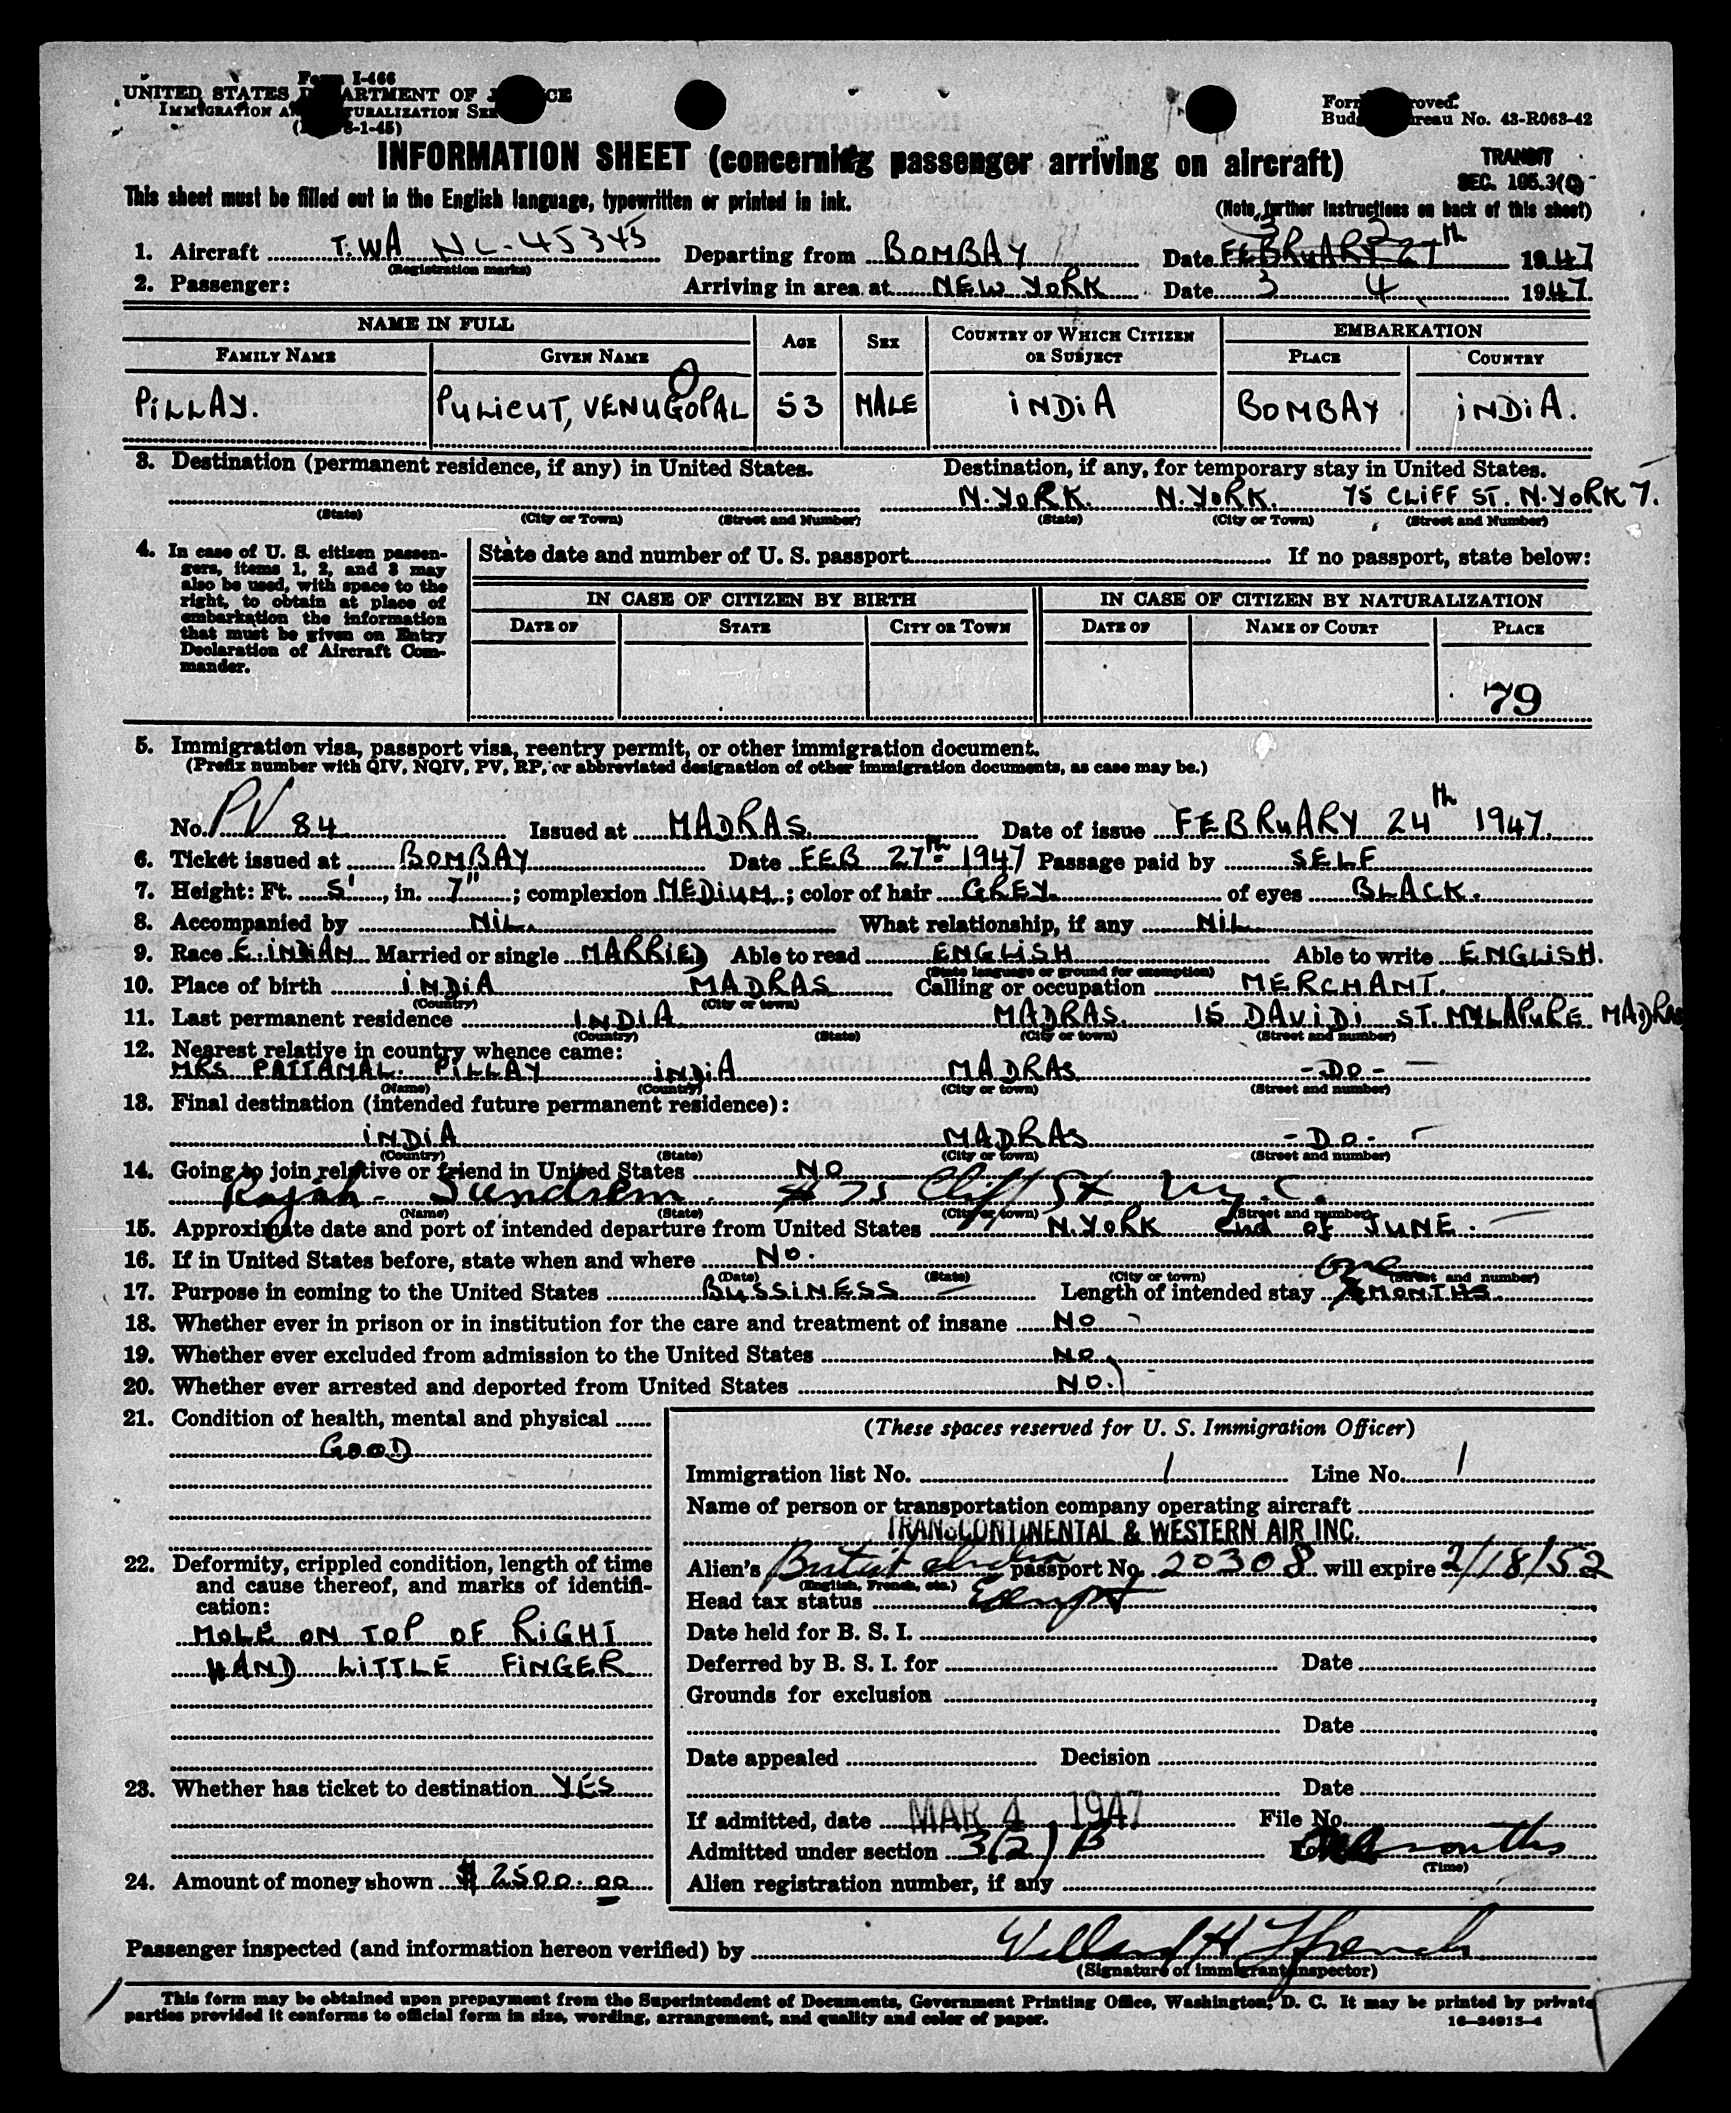 Form I-466
UNITED STATES DEPARTMENT OF JUSTICE
IMMIGRATION AND NATURALIZATION SERVICE
8-1-45)
Form Approved.
Budget Bureau No. 43-R063-42
INFORMATION SHEET (concerning passenger arriving on aircraft)
TRANSIT
SEC. 105.3(Q)
This sheet must be filled out in the English language, typewritten or printed in ink.
(Note further instructions on back of this sheet)
1. Aircraft T.WA NL-45345 Departing from BOMBAY Date FEBRUARY 27th 3 2 1947
(Registration marks)
2. Passenger: Arriving in area at NEW YORK Date 3 4 1947
NAME IN FULL
FAMILY NAME GIVEN NAME AGE SEX COUNTRY OF WHICH CITIZEN OR SUBJECT EMBARKATION PLACE COUNTRY
PILLAY. PULICUT, VENUGOPAL 53 MALE INDIA BOMBAY INDIA.
3. Destination (permanent residence, if any) in United States. Destination, if any, for temporary stay in United States.
N.YORK. N.YORK. 75 CLIFF ST. N.YORK 7.
(State) (City or Town) (Street and Number) (State) (City or Town) (Street and Number)
4. In case of U. S. citizen passengers, items 1, 2, and 3 may also be used, with space to the right, to obtain at place of embarkation the information that must be given on Entry Declaration of Aircraft Commander.
State date and number of U. S. passport If no passport, state below:
IN CASE OF CITIZEN BY BIRTH IN CASE OF CITIZEN BY NATURALIZATION
DATE OF STATE CITY OR TOWN DATE OF NAME OF COURT PLACE
79
5. Immigration visa, passport visa, reentry permit, or other immigration document.
(Prefix number with QIV, NQIV, PV, RP, or abbreviated designation of other immigration documents, as case may be.)
No. PV 84 Issued at MADRAS Date of issue FEBRUARY 24th 1947.
6. Ticket issued at BOMBAY Date FEB 27th 1947 Passage paid by SELF
7. Height: Ft. 5', in. 7"; complexion MEDIUM; color of hair GREY. of eyes BLACK.
8. Accompanied by NIL. What relationship, if any NIL
9. Race E. INDIAN Married or single MARRIED Able to read ENGLISH Able to write ENGLISH.
(State language or ground for exemption)
10. Place of birth INDIA MADRAS Calling or occupation MERCHANT.
(Country) (City or town)
11. Last permanent residence INDIA MADRAS. 15 DAVIDI ST. MYLAPURE MADRAS
(Country) (State) (City or town) (Street and number)
12. Nearest relative in country whence came:
MRS PATTAMAL. PILLAY INDIA MADRAS -DO-
(Name) (Country) (City or town) (Street and number)
13. Final destination (intended future permanent residence):
INDIA MADRAS -DO-
(Country) (State) (City or town) (Street and number)
14. Going to join relative or friend in United States NO
Rajah Sundrem # 75 Cliff St N.y.C.
(Name) (State) (City or town) (Street and number)
15. Approximate date and port of intended departure from United States N.YORK end of JUNE.
16. If in United States before, state when and where NO.
(Date) (State) (City or town) (Street and number)
17. Purpose in coming to the United States BUSSINESS Length of intended stay one MONTHS
18. Whether ever in prison or in institution for the care and treatment of insane NO
19. Whether ever excluded from admission to the United States NO
20. Whether ever arrested and deported from United States NO.
21. Condition of health, mental and physical
GOOD
22. Deformity, crippled condition, length of time and cause thereof, and marks of identification:
MOLE ON TOP OF RIGHT
HAND LITTLE FINGER
23. Whether has ticket to destination YES
24. Amount of money shown $ 2500.00
(These spaces reserved for U. S. Immigration Officer)
Immigration list No. 1 Line No. 1
Name of person or transportation company operating aircraft
TRANSCONTINENTAL & WESTERN AIR INC.
Alien's British India passport No. 20308 will expire 2/18/52
(English, French, etc.)
Head tax status Exempt
Date held for B. S. I.
Deferred by B. S. I. for Date
Grounds for exclusion
Date
Date appealed Decision
Date
If admitted, date MAR 4 1947 File No.
Admitted under section 3(2) B months
(Time)
Alien registration number, if any
Passenger inspected (and information hereon verified) by Willard H
(Signature of immigrant inspector)
This form may be obtained upon prepayment from the Superintendent of Documents, Government Printing Office, Washington, D. C. It may be printed by private
parties provided it conforms to official form in size, wording, arrangement, and quality and color of paper.
16-24915-4